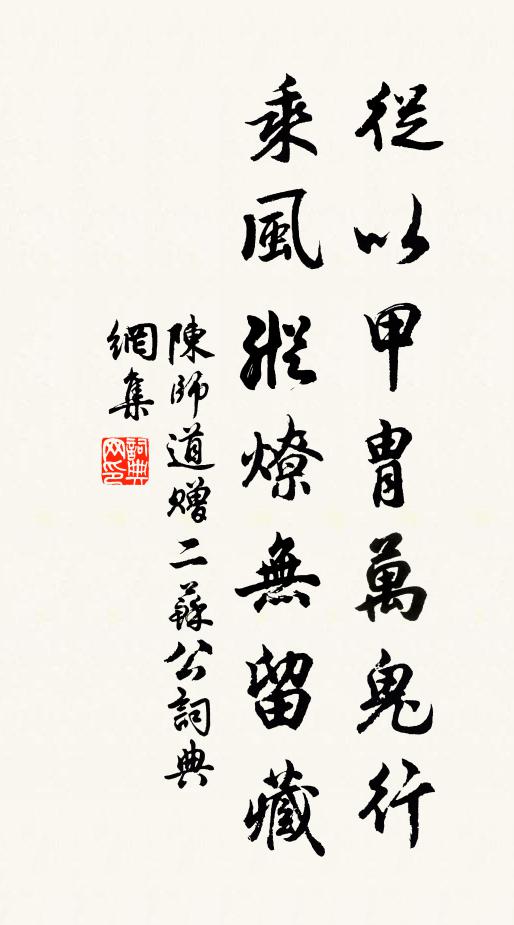 從以甲冑萬鬼行
乘風縱燎無留藏
陳師道贈二蘇公詞典
網集
詞典網印